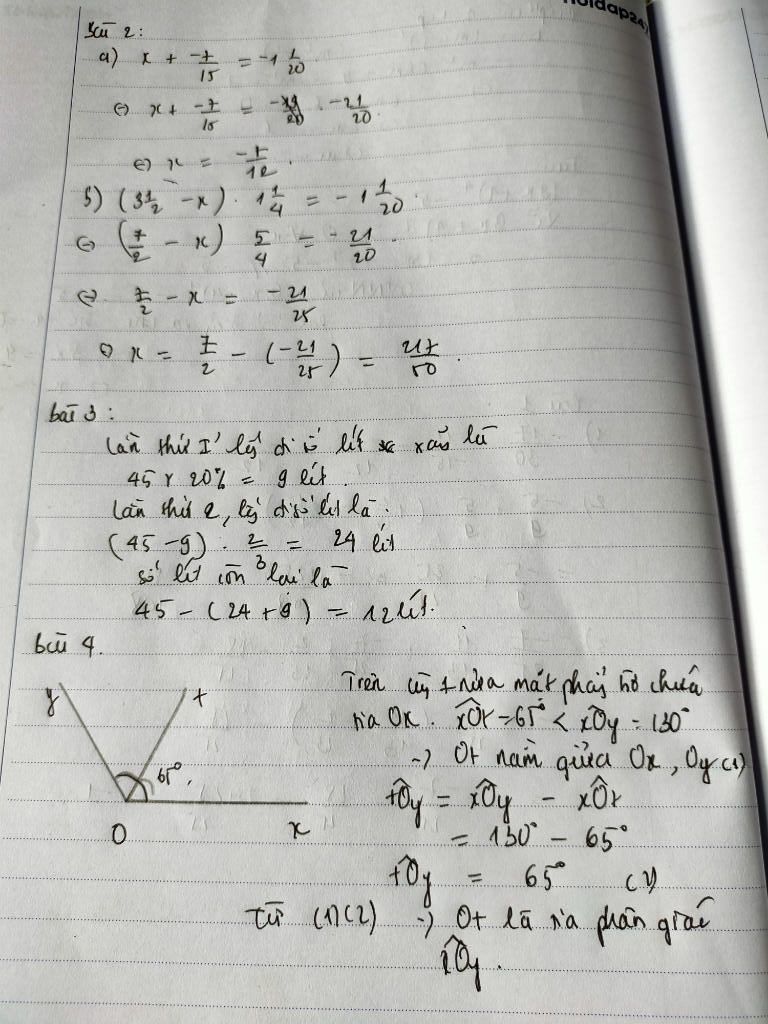 hoidap24
bài 2:
a) x + -7/15 = -1 1/20
⇔ x + -7/15 = -21/20
⇔ x = -7/12.
b) (3 1/2 - x) . 1 1/4 = -1 1/20.
⇔ (7/2 - x) 5/4 = -21/20.
⇔ 7/2 - x = -21/25
⇔ x = 7/2 - (-21/25) = 217/50.
bài 3:
Lần thứ I lấy đi số lít xăng là
45 x 20% = 9 lít.
Lần thứ 2, lấy đi số lít là.
(45 - 9) . 2/3 = 24 lít
số lít còn lại là
45 - (24 + 9) = 12 lít.
bài 4.
y t
65°
O x
Trên cùng 1 nửa mặt phẳng bờ chứa
tia Ox. xOt = 65° < xOy = 130°
→ Ot nằm giữa Ox, Oy (1)
tOy = xOy - xOt
= 130° - 65°
tOy = 65° (2)
Từ (1)(2) → Ot là tia phân giác
xOy.